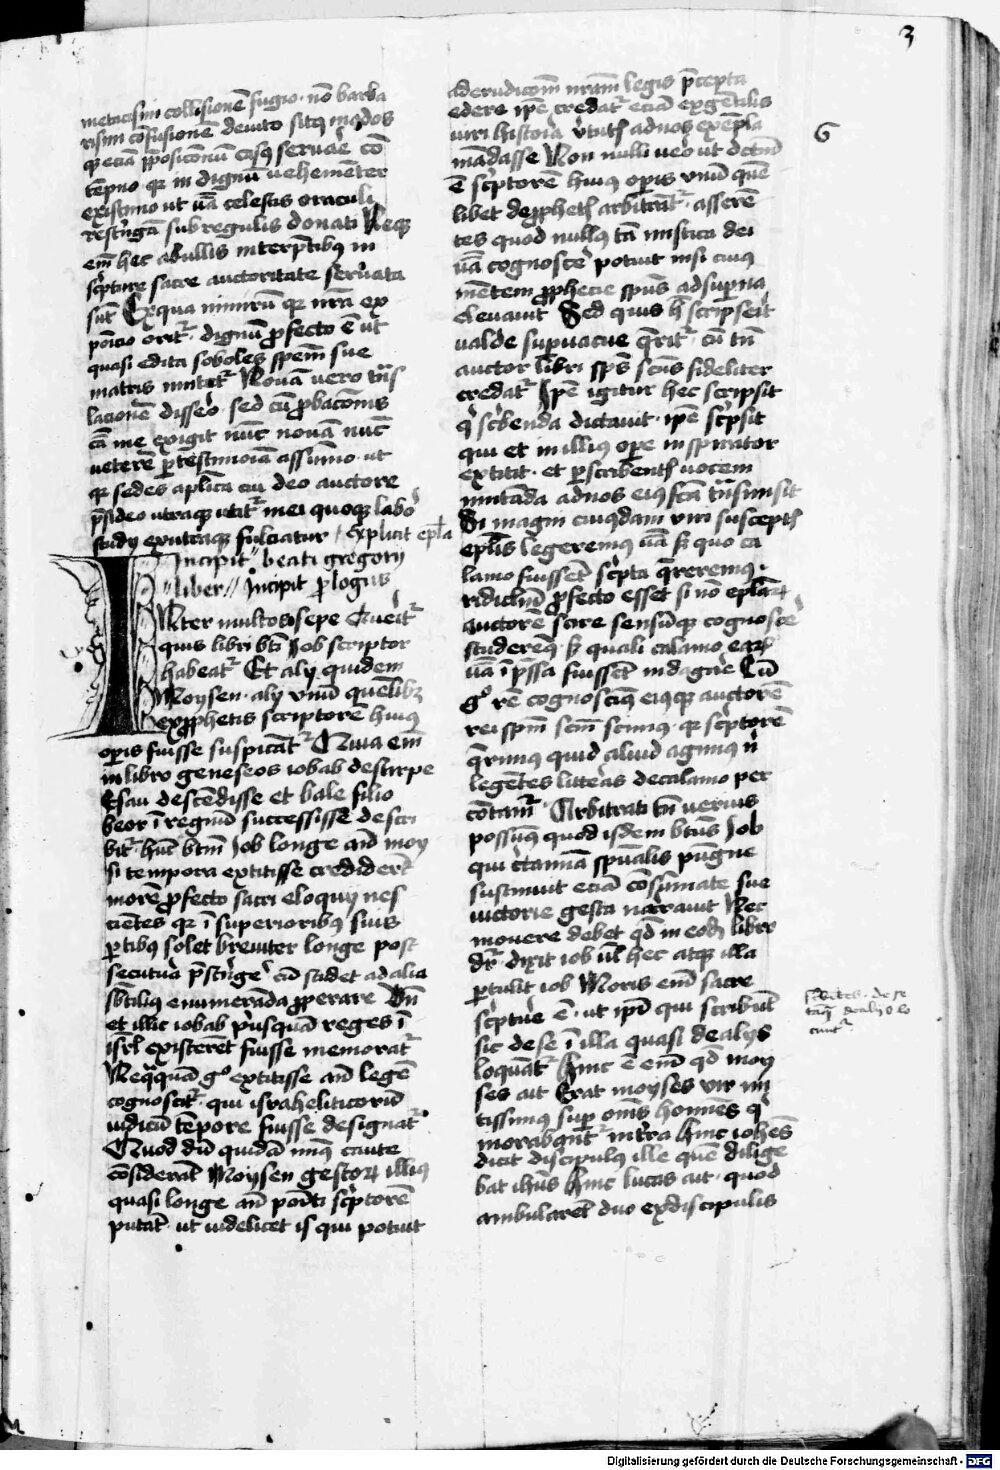 3
6
metacismi collisionē fugio · nō barba
rismi cōfusionē deuito situs modos
q; eciā p̄posicōnū casus seruare cō
tēpno · q; in dignū vehemēter
existimo ut v̄ba celestis oraculi
restringā sub regulis donati Neq;
em̄ hec ab ullis interp̄tibus in
sc̄pture sacre auctoritate seruata
sūt Ex qua nimirū q; nr̄a ex
po͡icio oritr̄ · dignū ꝓfecto ē ut
quasi edita soboles spēm sue
matris imitetr̄ Nouā vero trās
lacionē dissero · sed cū ꝓbacōnis
cā me exigit nūc nouā nūc
veterē p̱ testimoīa assumo · ut
q; sedes aplīca cui deo auctore
p̄sideo utraq; utitr̄ mei quoq; labor̄
studij ex utraq; fulciatur / Explicit epl̄a
Incipit beati gregorij
liber // Incipit ꝓlogus
Inter multos sepe Querit̄
quis libri bt̄i Job scriptor
habeatr̄ Et alij quidem
Moysen · alij vnū quēlibꝫ
ex ꝓphetis scriptorē huiꝰ
operis fuisse suspicātr̄ Quia em̄
in libro geneseos iobab de stirpe
Esau descēdisse et bale filio
beor ī regnū successisse descri
bitr̄ · hūc btm̄ Job longe an̄ moy
si tempora extitisse crediderūt
morē ꝓfecto sacri eloquij nes
cientes q; ī superioribꝰ suis
p̱tibꝰ solet breuiter longe post
secutura p̄stringere cū studet ad alia
sb̄tiliꝰ enumerāda ꝓperare Vn̄
et illic iobab priusquā reges ī
isrl̄ existerēt fuisse memoratr̄
Neq̄quā gͦ extitisse an̄ legē
cognoscitr̄ · qui israheliticorū
iudicū tēpore fuisse designatr̄
Quod dū quidā minꝰ caute
cōsiderāt Moysen gestoꝝ illiꝰ
quasi longe an̄ positi sc̄ptorē
putāt · ut videlicet is qui potuit
ad erudicōem nr̄am legis p̄cepta
edere ip̄e credatr̄ eciā ex gentilis
viri historia v̄tutū ad nos exēpla
mādasse Non nulli vero ut dictū
ē sc̄ptorē huiꝰ operis vnū quē
libet de ꝓphetis arbitrātr̄ · asserē
tes quod nullus tā mistica dei
v̄ba cognoscere potuit nisi cuiꝰ
mētem ꝓphecie spūs ad superna
eleuauit Sed quis hec scripserit
valde supuacue q̄ritr̄ · cū tn̄
auctor libri sp̄s sc̄us fideliter
credatr̄ Ip̄e igitur hec scripsit
q̄ sc̄benda dictauit · ip̄e sc̄psit
qui et in illius opere inspirator
extitit · et p̱ scribentis vocem
imitāda ad nos eiꝰ fc̄a trāsmisit
Si magni cuiusdam viri susceptis
epl̄is legeremꝰ v̄ba sꝫ quo ca
lamo fuissēt sc̄pta q̄reremꝰ ·
ridiclm̄ ꝓfecto esset si nō eplaꝝ
auctorē scire sensūq; cognoscere
studeremꝰ sꝫ quali calamo eaꝝ
v̄ba īp̄ssa fuissēt indagare Cū
gͦ rē cognoscimꝰ eiusq; auctorē
rei sp̄m scm̄ scimꝰ · q; sc̄ptorē
q̄rimus quid aliud agimꝰ n̄
legētes litteras de calamo per
cōtamr̄ · Arbitrari tn̄ verius
possumꝰ quod isdem bt̄us Job
qui c̄tamīa sp̄ualis pūgne
sustinuit eciā cōsūmate sue
victorie gesta narrauit Nec
mouere debet qd̄ in eodē libro
dr̄ · dixit iob vl̄ hec atq; illa
p̱tulit iob Moris em̄ sacre
sc̄pture ē · ut ip̄i qui scribūt
sic de se ī illa quasi de alijs
loquātr̄ hinc ē em̄ qd̄ moy
ses ait Erat moyses vir mi
tissimus super om̄s homines q̄
morabantr̄ in tr̄ra hinc iohēs
dicit discipulus ille quē dilige
bat ihūs hinc lucas ait · quod
ambularent duo ex discipulis
sc̄bētes · de se
tāq̄ de alijs lo
cūtr̄
Digitalisierung gefördert durch die Deutsche Forschungsgemeinschaft - DFG